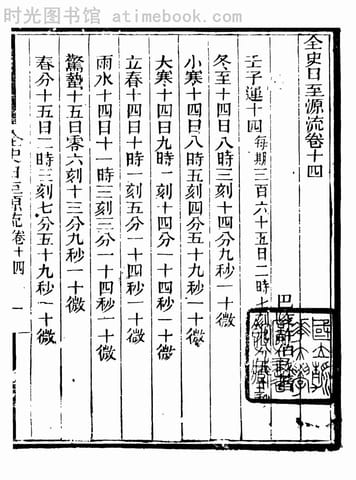 时光图书馆 atimebook.com
全史日至源流卷十四
巴陵
壬子運十四 每期三百六十五日二時七
冬至十四日八時四刻五分一十秒一十微
小寒十四日八時五刻四分五十九秒一十微
大寒十四日九時一刻十四分一十四秒一十微
立春十四日十時一刻五分一十四秒一十微
雨水十四日十一時三刻三分一十四秒一十微
驚蟄十五日零六刻十三分九秒一十微
春分十五日二時三刻七分五十九秒一十微
全史日至源流 卷十四 一